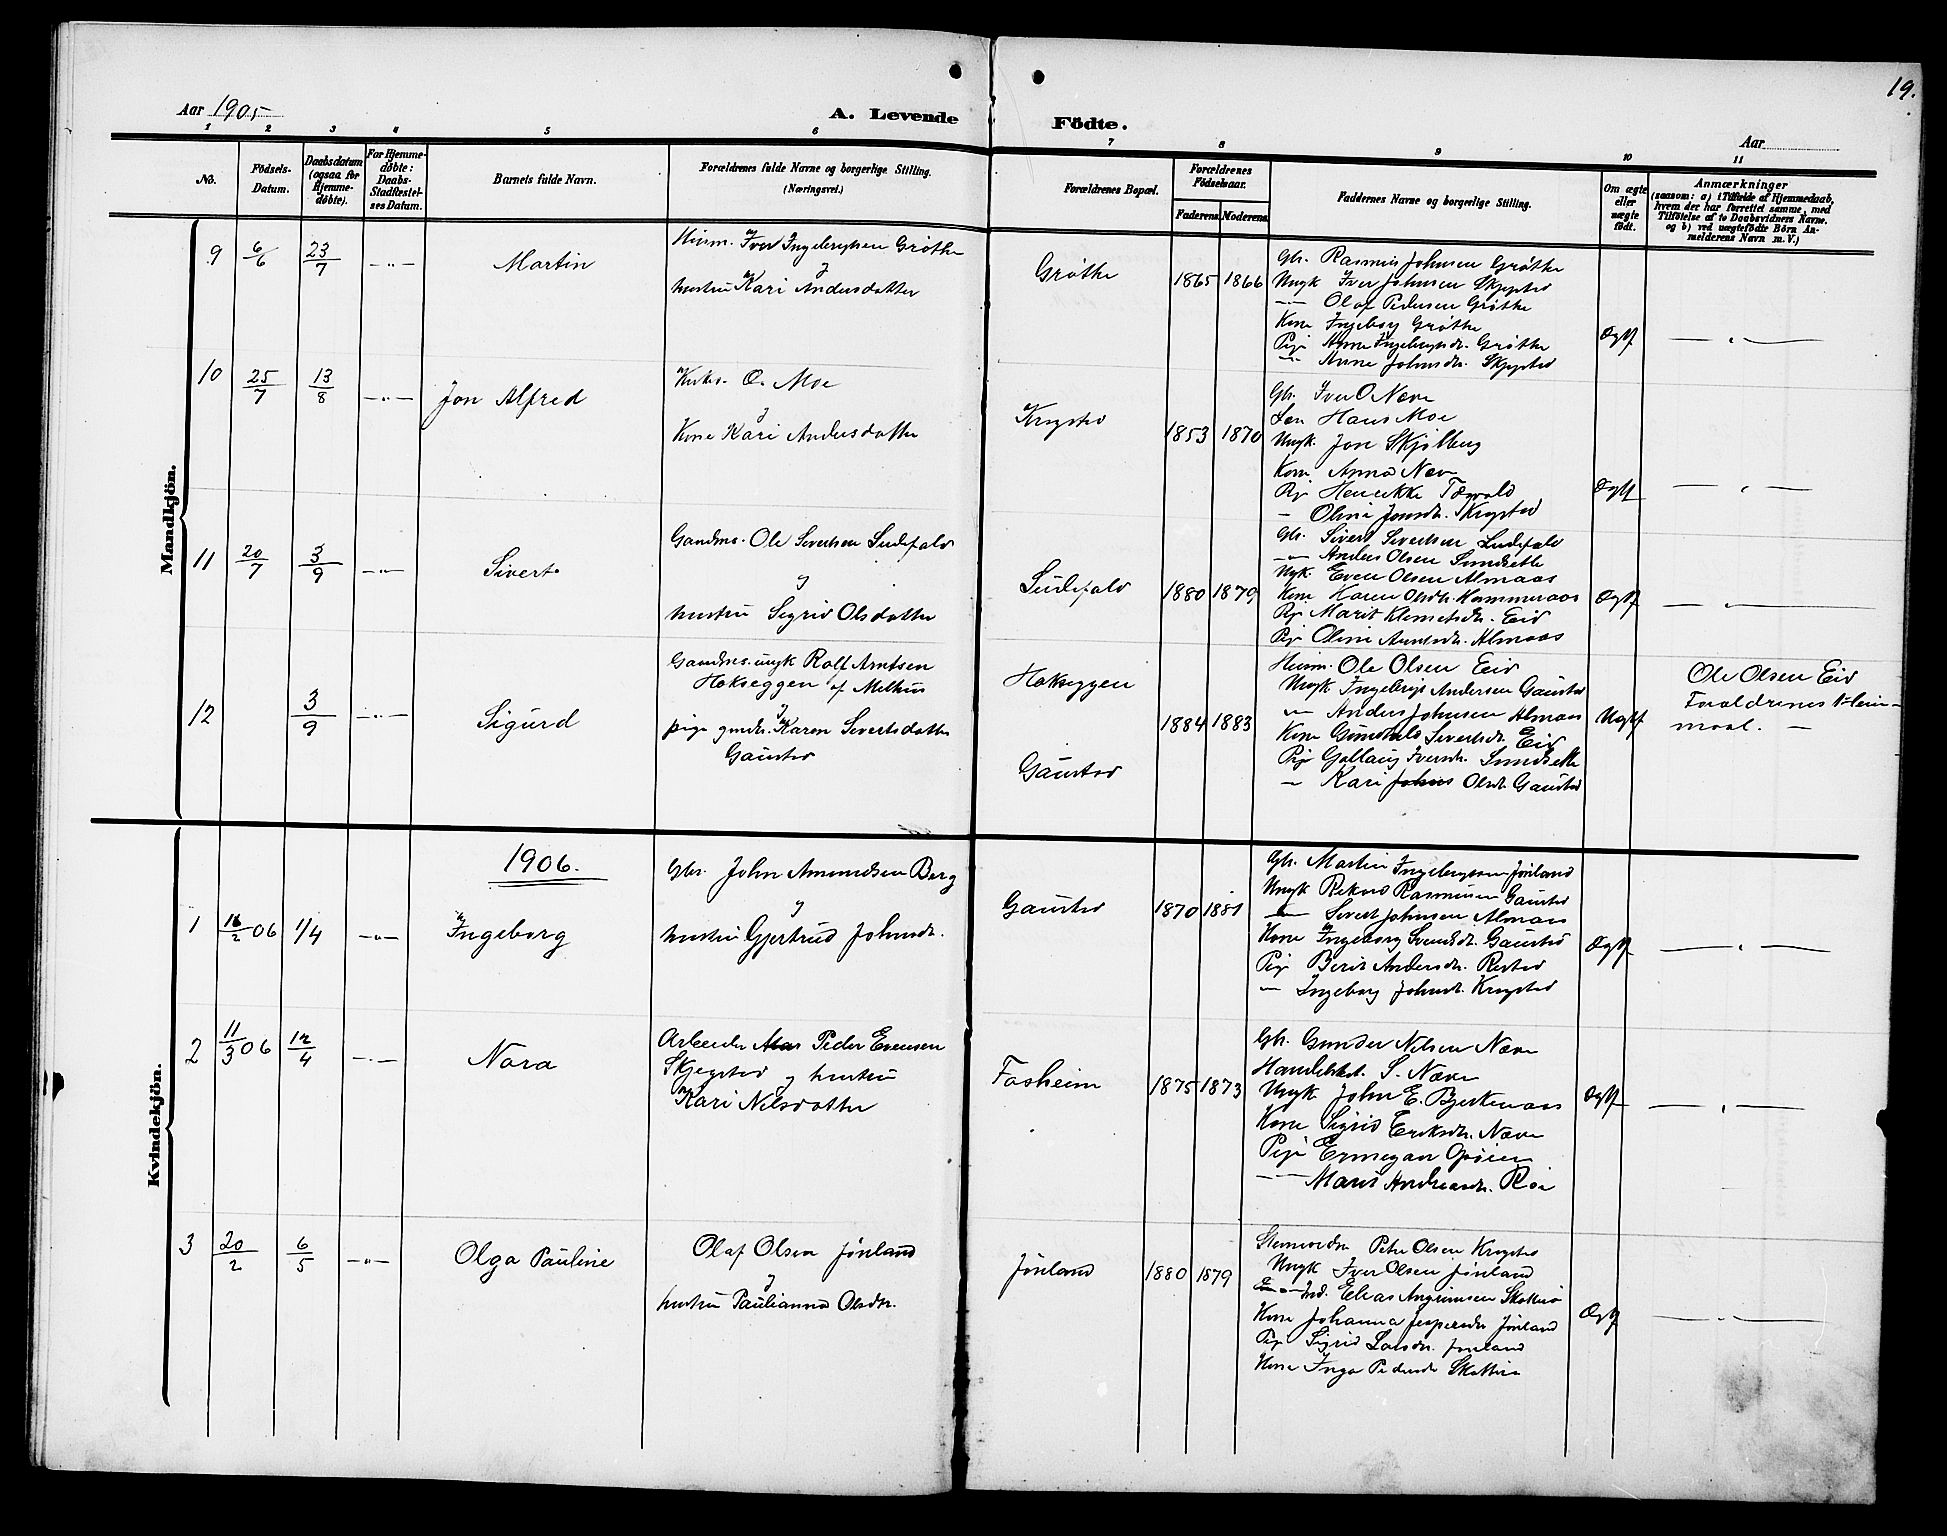 19.
Aar 1905
A. Levende Födte.
Aar
1 2 3 4 5 6 7 8 9 10 11
No.
Födsels-
Datum.
Daabsdatum
(ogsaa for
Hjemme-
döbte).
For Hjemme-
döbte:
Daabs-
Stadfæstel-
ses Datum.
Barnets fulde Navn.
Forældrenes fulde Navne og borgerlige Stilling.
(Næringsvei.)
Forældrenes Bopæl.
Forældrenes
Födselsaar.
Faderens. Moderens.
Faddernes Navne og borgerlige Stilling.
Om ægte
eller
uægte
födt.
Anmærkninger
(saasom: a) i Tilfælde af Hjemmedaab,
hvem der har forrettet samme, med
Tilföielse af to Daabsvidners Navne.
og b) ved uægtefödte Börn An-
melderens Navn m. V.)
Mandkjön.
9 6/6 23/7 —„— Martin
Husm. Iver Ingebrigtsen Grøthe
y
hustru Kari Andersdatter
Grøthe
1865 1866
Gbr. Rasmus Johnsen Grøthe
Ungk Iver Johnsen Skjegstad
—„— Olaf Pedersen Grøthe
Kone Ingeborg Grøthe
Pige Anne Ingebrigtsdr. Grøthe
— Anne Johnsdr. Skjegstad
Ægtf
— „ —
10 25/7 13/8 —„— Jon Alfred
Kirkes. O. Moe
y
Kone Kari Andersdatter
Krogstad
1853 1870
Gbr. Iver O Næve
Søn Hans Moe
Ungk. Jon Skjølberg
Kone Anna Næve
Pige Henrikke
— Oline Jonsdr. Krogstad
Ægtf
— „ —
11 20/7 3/9 —„— Sivert
Gaardms. Ole Sivertsen
y
hustru Sigrid Olsdatter
1880 1879
Gbr. Sivert Sivertsen
—„— Anders Olsen Sundsetle
Ungk. Even Olsen Almaas
Kone Karen Olsdr. Hammeraas
Pige Marit Klemetsdr. Eid
Pige Oline Arntsdr. Almaas
Ægtf
— „ —
12 3/9 —„— Sigurd
Gaardms. ungk Rolf Arntsen
Hokseggen af Melhus
y
pige gmdr. Karen Sivertsdatter
Gaustad
Hokseggen
Gaustad
1884 1883
Husm. Ole Olsen Eid
Ungk Ingebrigt Andersen Gaustad
—„— Anders Johnsen Almaas
Kone Gunhild Sivertsdr. Eid
Pige Gollaug Iversdr. Sundsetle
— Kari Johns Olsdr. Gaustad
Uægtf
Ole Olsen Eid
Foraldrenes 1ste Leier-
maal. —
Kvindekjön.
1906.
1 16/2 06 1/4 —„— Ingeborg
Gbr. John Amundsen Berg
y
hustru Gjertrud Johnsdr.
Gaustad
1870 1881
Gbr. Martin Ingebrigtsen Jønland
Ungk Rikard Rasmussen Gaustad
—„— Sivert Johnsen Almaas
Kone Ingeborg Svendsdr. Gaustad
Pige Berit Andersdr. Restad
— Ingeborg Johnsdr. Krogstad
Ægtf
— „ —
2 11/3 06 12/4 —„— Nora
Arbeider Peder Evensen
Skjegstad y hustru
Kari Nilsdatter
Fosheim
1875 1873
Gbr. Gunder Nilsen Næve
Handelsbet. S. Næve
Ungk John E. Bjerkenaas
Kone Sigrid Eriksdr. Næve
Pige Ermegan Gøien
—„— Marit Andreasdr. Røe
Ægtf
— „ —
3 20/2 6/5 —„— Olga Pauline
Olaf Olsen Jønland
y
hustru Paulianna Olsdr.
Jønland
1880 1879
Peter Olsen Krogstad
Ungk Iver Olsen Jønland
Elias Angrimsen
Kone Johanna Jespersdr Jønland
Pige Sigrid Larsdr. Jønland
Kone Inga Pedersdr
Ægtf
— „ —